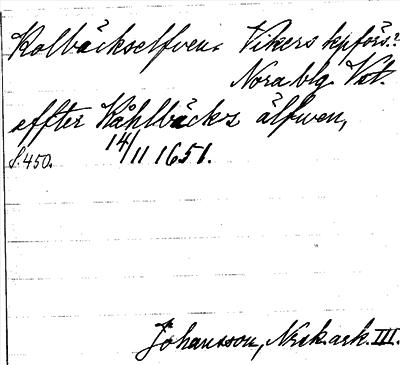 Kolbäckselfven. Vikers kpförs.?
Nora blg. Vstm.
effter Kåhlbäcks älfwen,
s. 450. 14/11 1651.
Johansson, Norak. ark. III.